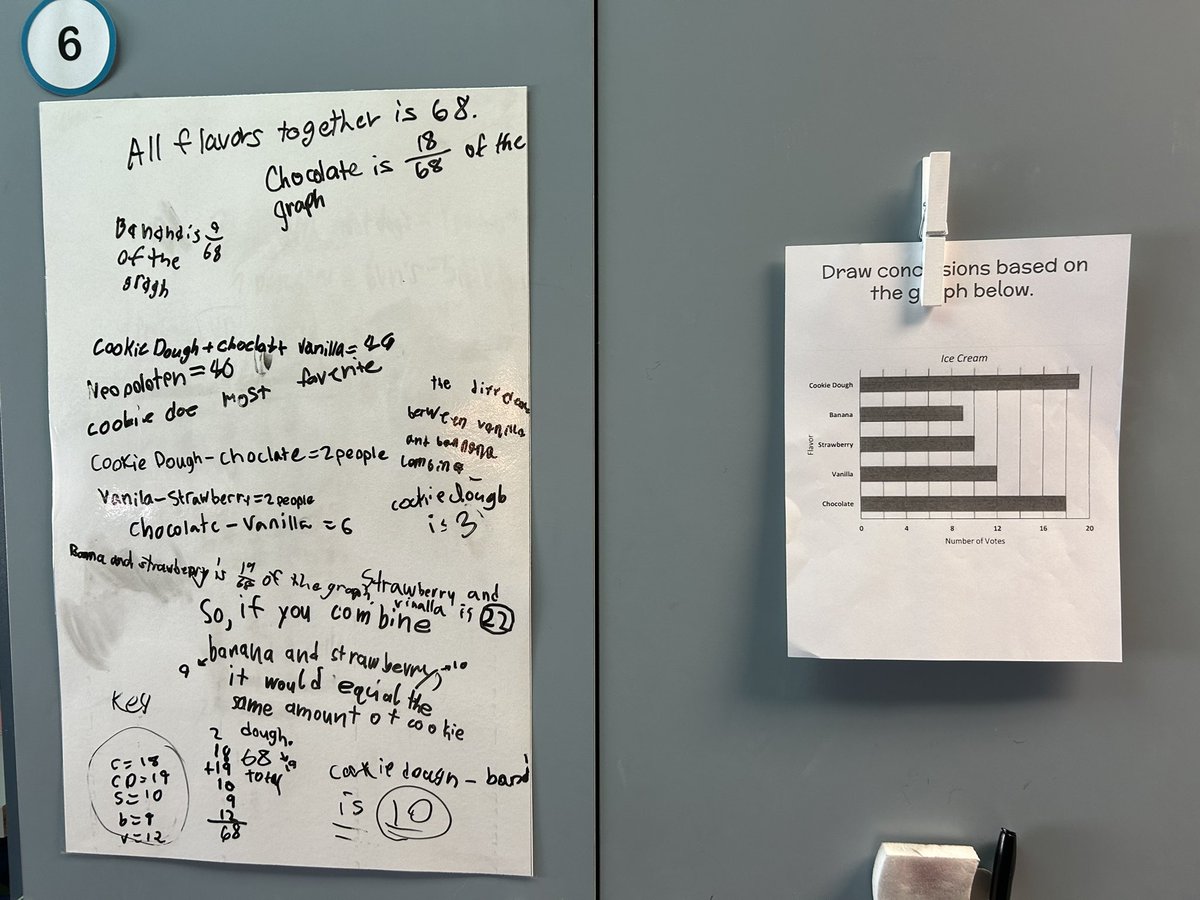 6
All flavors together is 68.
Chocolate is 18/68 of the
graph
Banana is 9/68
of the
graph
Cookie Dough + choclatt vanilla = 49
Neopoloten = 40
cookie doe most favorite
the
between vanilla
and bannana
combine
cookie dough
is 3
Cookie Dough - choclate = 2 people
Vanila - Strawberry = 2 people
Chocolate - Vanilla = 6
and strawberry is 19/68 of the graph
Strawberry and
vinalla is 22
So, if you combine
9 banana and strawberry 10
it would equial the
same amount of cookie
dough.
Key
C = 18
CD = 19
S = 10
b = 9
v = 12
2
18
+19
10
9
12
68
68
total
cookie dough -
is 10
Draw conc sions based on
the g ph below.
Ice Cream
Flavor
Cookie Dough
Banana
Strawberry
Vanilla
Chocolate
0 4 8 12 16 20
Number of Votes